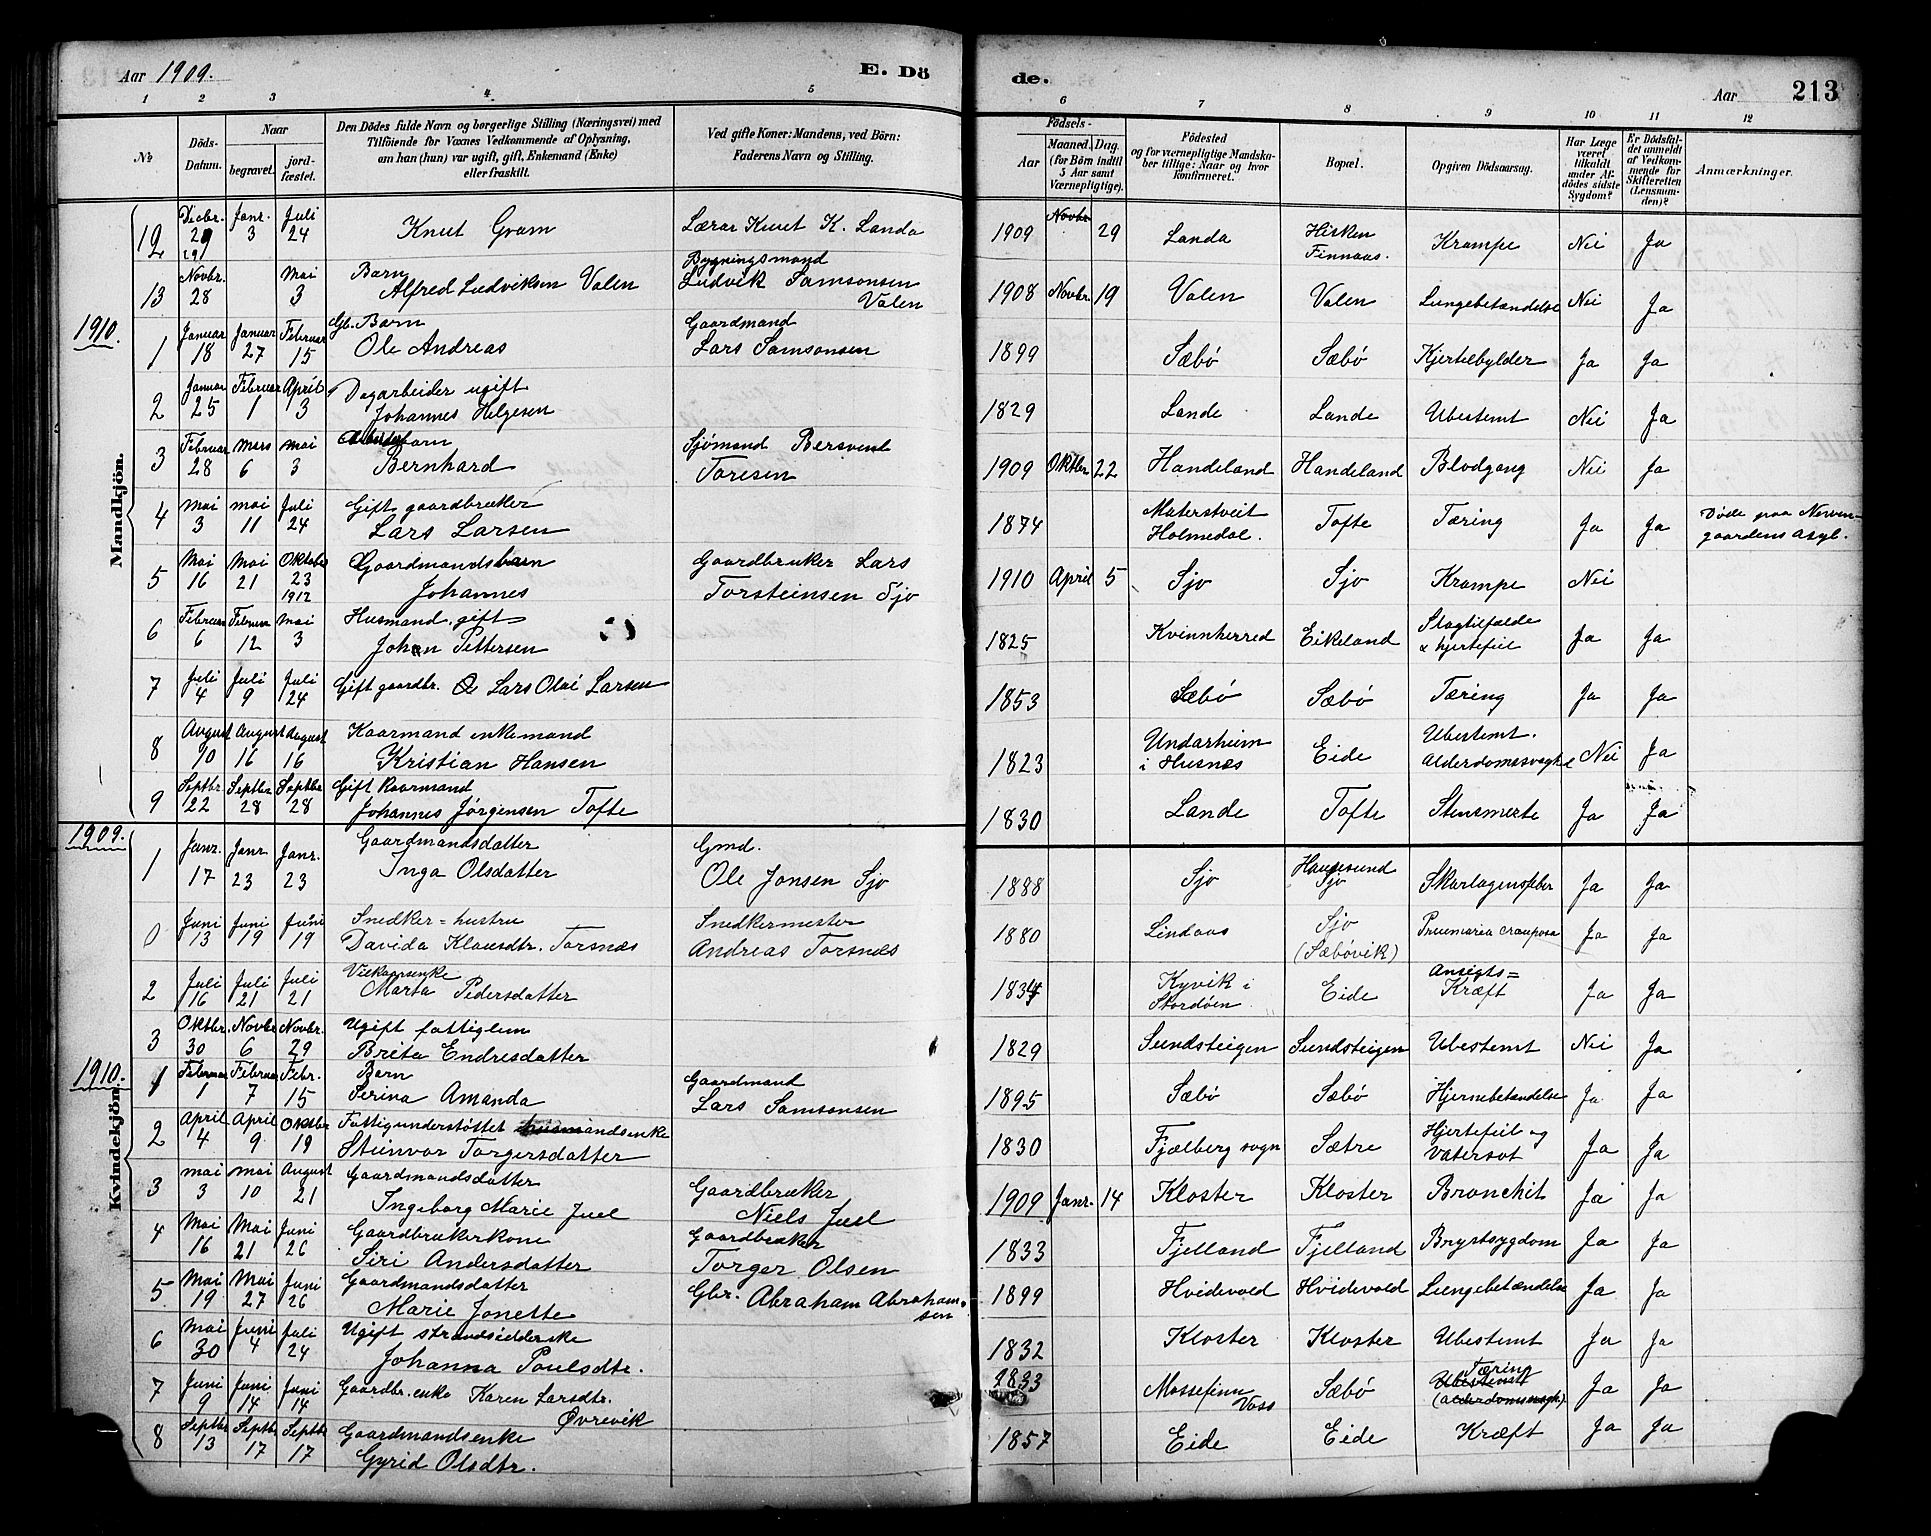 Aar 1909. E. Dö de. Aar 213
1 2 3 4 5 6 7 8 9 10 11 12
No Döds-Datum. Naar begravet. jordfæstet. Den Dödes fulde Navn og borgerlige Stilling (Næringsvei) med Tilföiende for Voxnes Vedkommende af Oplysning, om han (hun) var ugift, gift, Enkemand (Enke) eller fraskilt. Ved gifte Koner: Mandens, ved Börn: Faderens Navn og Stilling. Födsels- Aar Maaned. Dag. (for Börn indtil 5 Aar samt Værnepligtige). Födested og for værnepligtige Mandskaber tillige: Naar og hvor konfirmeret. Bopæl. Opgiven Dödsaarsag. Har Læge været tilkaldt under Afdödes sidste Sygdom? Er Dödsfaldet anmeldt af Vedkommende for Skifteretten (Lensmanden)? Anmærkninger.
Mandkjön.
12 Decbr. 29 Janr. 3 Juli 24 Knut Gram Lærar Knut K. Landa 1909 Novbr. 29 Landa Hisken Finnaas. Krampe Nei Ja
13 Novbr. 28 Mai 3 Barn Alfred Ludviksen Valen Bygningsmand Ludvik Samsonsen Valen 1908 Novbr. 19 Valen Valen Lungebetændelse Nei Ja
1910.
1 Januar 18 Januar 27 Februar 15 Gb. Barn Ole Andreas Gaardmand Lars Samsonsen 1899 Sæbö Sæbö Kjertelbylder Ja Ja
2 Januar 25 Februar 1 April 3 Dagarbeider ugift Johannes Helgesen 1829 Lande Lande Ubestemt Nei Ja
3 Februar 28 Mars 6 Mai 3 barn Bernhard Sjömand Bersvend Toresen 1909 Oktbr. 22 Handeland Handeland Blodgang Nei Ja
4 Mai 3 Mai 11 Juli 24 Gift gaardbruker Lars Larsen 1874 Matersteit Holmedal. Tofte Tæring Ja Ja Döde paa Neven-gaardens Asyl.
5 Mai 16 Mai 21 Oktober 23 1912 Gaardmandsbarn Johannes Gaardbruker Lars Torsteinsen Sjo 1910 April 5 Sjo Sjo Krampe Nei
6 Februar 6 Februar 12 Mai 3 Husmand, gift Johan Pettersen 1825 Kvinnherred Eikeland Slagtilfælde & hjertefeil Ja Ja
7 Juli 4 Juli 9 Juli 24 Gift gaardbr. Lars Olai Larsen 1853 Sæbö Sæbö Tæring Ja Ja
8 August 10 August 16 August 16 Kaarmand enkemand Kristian Hansen 1823 Undarheim i Husnes Eide Ubestemt. Alderdomssvaghe Nei Ja
9 Septbr. 22 Septbr. 28 Septbr. 28 Gift Kaarmand Johannes Jörgensen Tofte 1830 Lande Tofte Stensmerte Ja Ja
1909.
Kvindekjön.
1 Janr. 17 Janr. 23 Janr. 23 Gaardmandsdatter Inga Olsdatter Gmd. Ole Jonsen Sjo 1888 Sjo Haugesund Sjo Skarlagensfeber Ja Ja
0 Juni 13 Juni 19 Juni 19 Snedker=hustru Davida Klausdtr. Torsnæs Snedkermester Andreas Torsnæs 1880 Lindaas Sjo (Sæbövik) Pneumaria crouposa Ja Ja
2 Juli 16 Juli 21 Juli 21 Vilkaarsenke Marta Pedersdatter 1834 Kyvik i Stordöen Eide Ansigts=Kræft Ja Ja
3 Oktbr. 30 Novbr. 6 Novbr. 29 Ugift fattiglem Brita Endresdatter 1829 Sundsteigen Sundsteigen Ubestemt Nei Ja
1910.
1 Februar 1 Februar 7 Febr. 15 Barn Serina Amanda Gaardmand Lars Samsonsen 1895 Sæbö Sæbö Hjernebetændelse Ja Ja
2 April 4 April 9 Oktbr 19 Fattigunderstöttet husmandsenke Steinvor Torgersdatter 1830 Fjælberg sogn Sætre Hjertefeil og Vatersot Ja Ja
3 Mai 3 Mai 10 August 21 Gaardmandsdatter Ingeborg Marie Juel Gaardbruker Niels Juel 1909 Janr. 14 Kloster Kloster Bronchit Ja Ja
4 Mai 16 Mai 21 Juni 26 Gaardbrukerkone Siri Andersdatter Gaardbruker Torger Olsen 1833 Fjelland Fjelland Brystsygdom Ja Ja
5 Mai 19 Mai 27 Juni 26 Gaardmandsdatter Marie Jonette Gbr. Abraham Abrahamsen 1899 Hvidevold Hvidevold Lungebetændelse Ja Ja
6 Mai 30 Juni 4 Juli 24 Ugift strandsidderske Johanna Poulsdtr. 1832 Kloster Kloster Ubestemt Ja Ja
7 Juni 9 Juni 14 Juni 14 Gaardbr. enke Karen Larsdtr. Øvrevik 1833 Mossefinn Voss Sæbö Tæring Ubestemt Ja Ja
8 Septbr 13 Septbr 17 Septbr 17 Gaardmandsenke Gyrid Olsdtr. 1857 Eide Eide Kræft Ja Ja